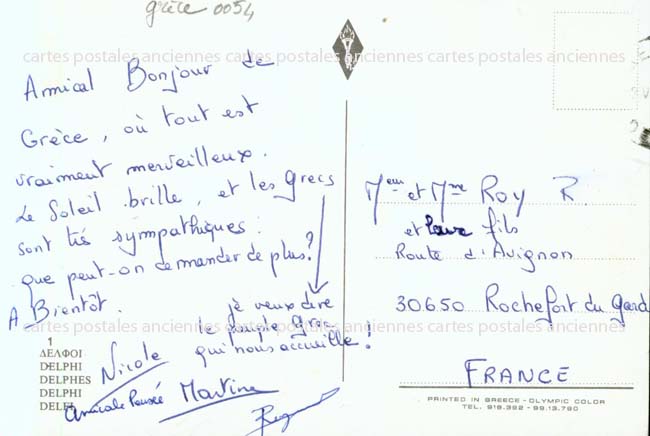 grèce 0054
cartes postales anciennes cartes postales anciennes cartes postales anciennes
Amical Bonjour de
Grèce, où tout est
vraiment merveilleux.
Le Soleil brille, et les grecs
sont très sympathiques :
que peut-on demander de plus ?
A Bientôt.
je veux dire
le peuple grec
qui nous accueille !
Nicole
Amicale Pensée Martine
1
ΔΕΛΦΟΙ
DELPHI
DELPHES
DELPHI
DELFI
Meur et Mme Roy R.
et leur fils
Route d'Avignon
30650 Rochefort du Gard
cartes postales anciennes cartes postales anciennes cartes postales anciennes
FRANCE
PRINTED IN GREECE - OLYMPIC COLOR
TEL. 918.392 - 99.13.780